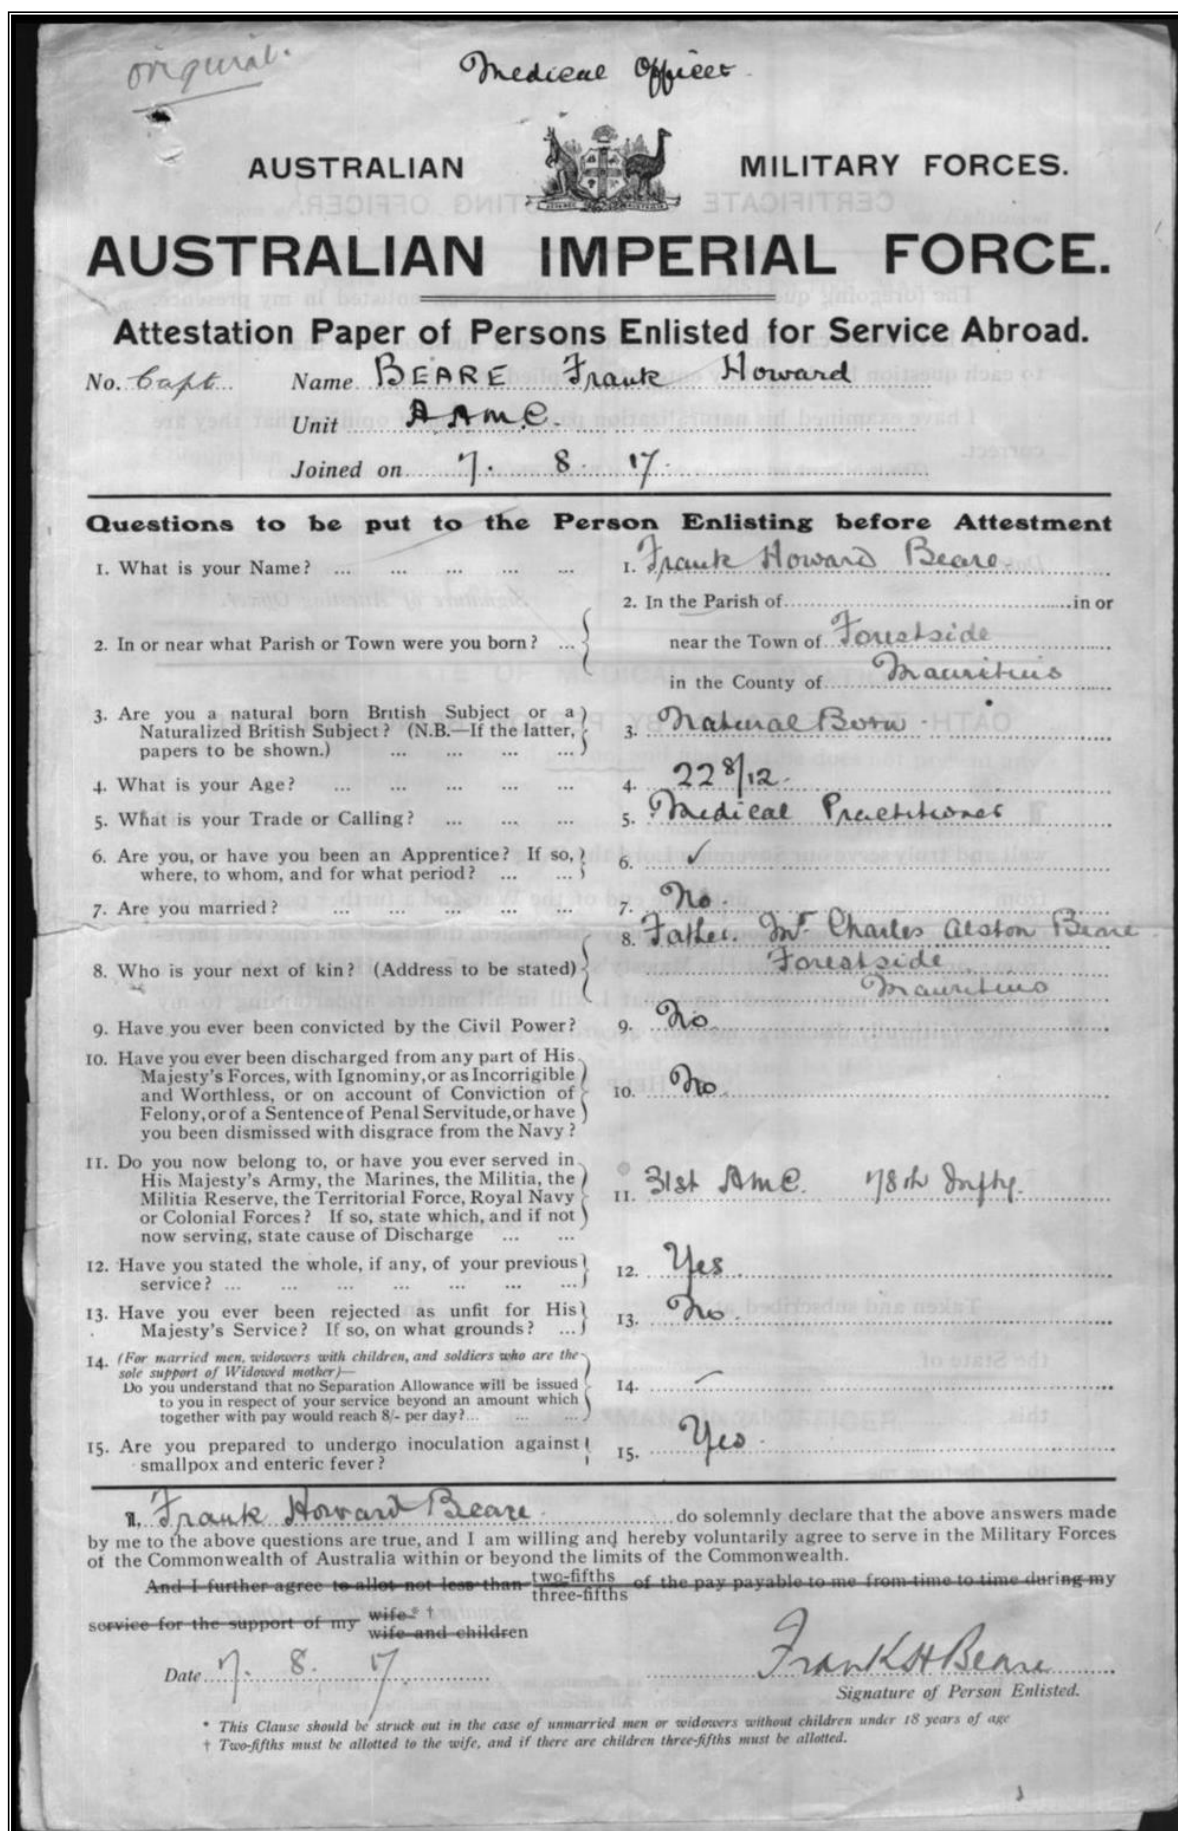 original.
Medical Officer.
AUSTRALIAN MILITARY FORCES.
AUSTRALIAN IMPERIAL FORCE.
Attestation Paper of Persons Enlisted for Service Abroad.
No. Capt. Name BEARE Frank Howard
Unit A.A.M.C.
Joined on 7. 8. 17.
Questions to be put to the Person Enlisting before Attestment
1. What is your Name? ... ... ... ... ... 1. Frank Howard Beare
2. In the Parish of in or
2. In or near what Parish or Town were you born? ... near the Town of Forestside
in the County of Mauritius
3. Are you a natural born British Subject or a
Naturalized British Subject? (N.B.—If the latter, 3. Natural Born.
papers to be shown.) ... ... ... ...
4. What is your Age? ... ... ... ... ... 4. 22 8/12.
5. What is your Trade or Calling? ... ... ... 5. Medical Practitioner
6. Are you, or have you been an Apprentice? If so, 6. ✓
where, to whom, and for what period? ... ...
7. Are you married? ... ... ... ... ... 7. No.
8. Father. Mr Charles Alston Beare
8. Who is your next of kin? (Address to be stated) Forestside
Mauritius
9. Have you ever been convicted by the Civil Power? 9. No
10. Have you ever been discharged from any part of His
Majesty's Forces, with Ignominy, or as Incorrigible
and Worthless, or on account of Conviction of 10. No.
Felony, or of a Sentence of Penal Servitude, or have
you been dismissed with disgrace from the Navy?
11. Do you now belong to, or have you ever served in
His Majesty's Army, the Marines, the Militia, the
Militia Reserve, the Territorial Force, Royal Navy 11. 31st AMC. 78th Inftry.
or Colonial Forces? If so, state which, and if not
now serving, state cause of Discharge ... ...
12. Have you stated the whole, if any, of your previous 12. Yes
service? ... ... ... ... ... ... ...
13. Have you ever been rejected as unfit for His 13. No.
Majesty's Service? If so, on what grounds? ...
14. (For married men, widowers with children, and soldiers who are the
sole support of Widowed mother)—
Do you understand that no Separation Allowance will be issued 14.
to you in respect of your service beyond an amount which
together with pay would reach 8/- per day?... ... ...
15. Are you prepared to undergo inoculation against 15. Yes.
smallpox and enteric fever?
I, Frank Howard Beare do solemnly declare that the above answers made
by me to the above questions are true, and I am willing and hereby voluntarily agree to serve in the Military Forces
of the Commonwealth of Australia within or beyond the limits of the Commonwealth.
And I further agree to allot not less than two-fifths three-fifths of the pay payable to me from time to time during my
service for the support of my wife* † wife and children
Date 7. 8. 17 Frank H Beare
Signature of Person Enlisted.
* This Clause should be struck out in the case of unmarried men or widowers without children under 18 years of age
† Two-fifths must be allotted to the wife, and if there are children three-fifths must be allotted.